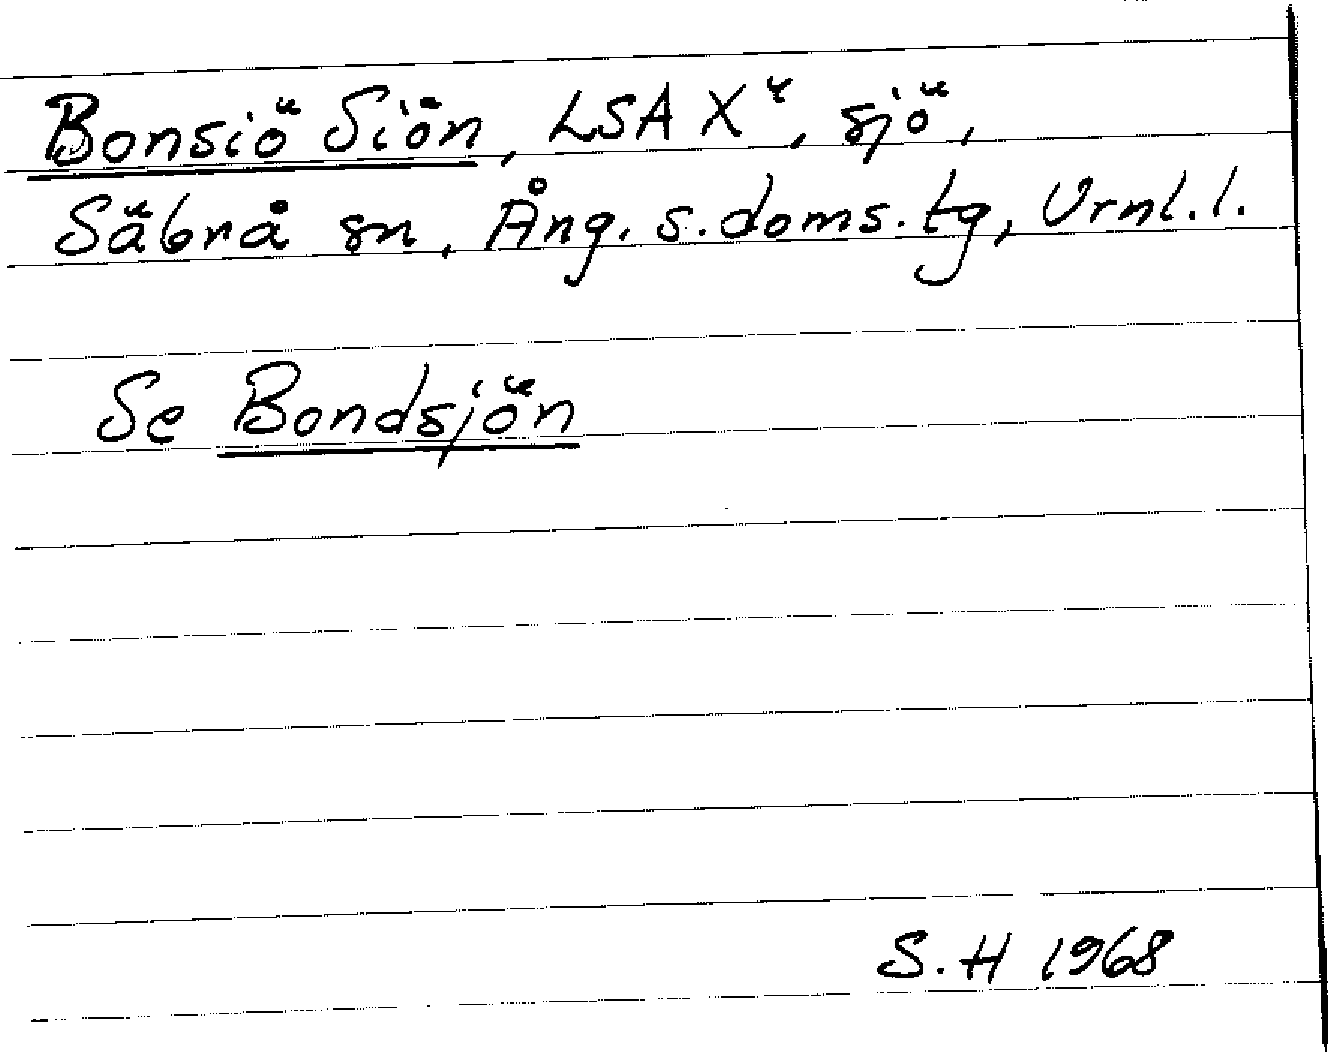 Bonsiö Siön, LSA X⁴, sjö,
Säbrå sn, Ång. s. doms. tg, Vrnl. l.
Se Bondsjön
S.H 1968